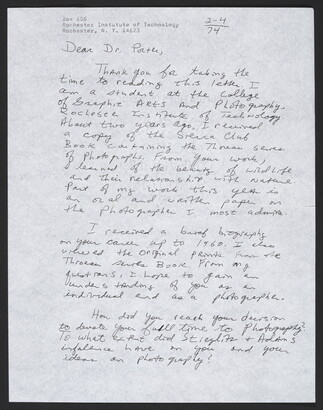 Box 606
Rochester Institute of Technology
Rochester, N. Y. 14623
2-4
74
Dear Dr. Porter,
Thank you for taking the
time to reading this letter I
am a student at the College
of Graphic Arts and Photography,
Rochester Institute of Technology
About two years ago, I received
a copy of the Sierra Club
Book containing the Thoreau series
of photographs. From your work,
I learned of the beauty of wildlife
and their relationship with Nature
Part of my work this year is
an oral and written paper on
the photographer I most admire.
I received a brief biography
on your career up to 1960. I also
viewed the original prints from the
Thoreau series Book From my
questions, I hope to gain an
understanding of you as an
individual and as a photographer.
How did you reach your decision
to devote your full time to Photography?
To what extent did Stieglitz + Adams
influence have on you and your
ideas on photography?